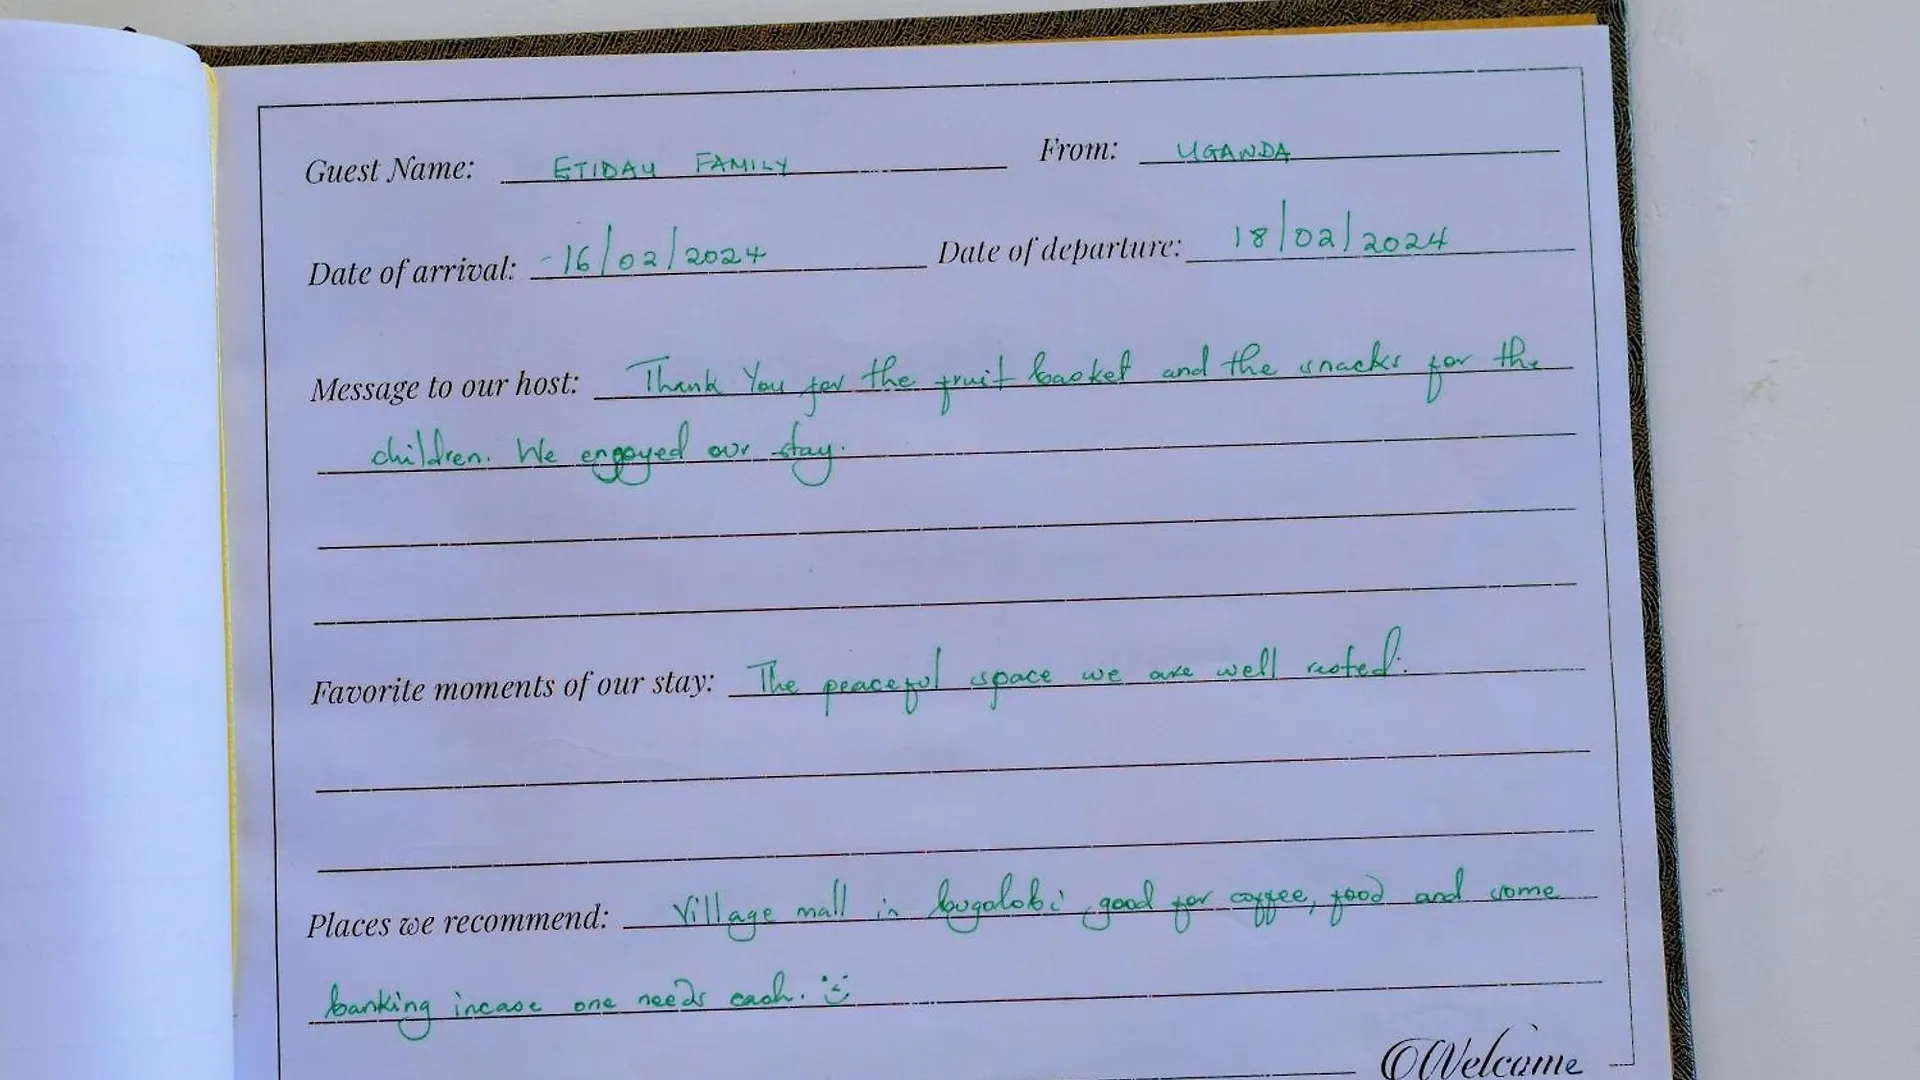 Guest Name: ETIDAU FAMILY From: UGANDA
Date of arrival: 16/02/2024 Date of departure: 18/02/2024
Message to our host: Thank You for the fruit basket and the snacks for the
children. We engoyed our stay.
Favorite moments of our stay: The peaceful space we are well rested.
Places we recommend: Village mall in bugolobi, good for coffee, food and some
banking incase one needs cash. :)
Welcome